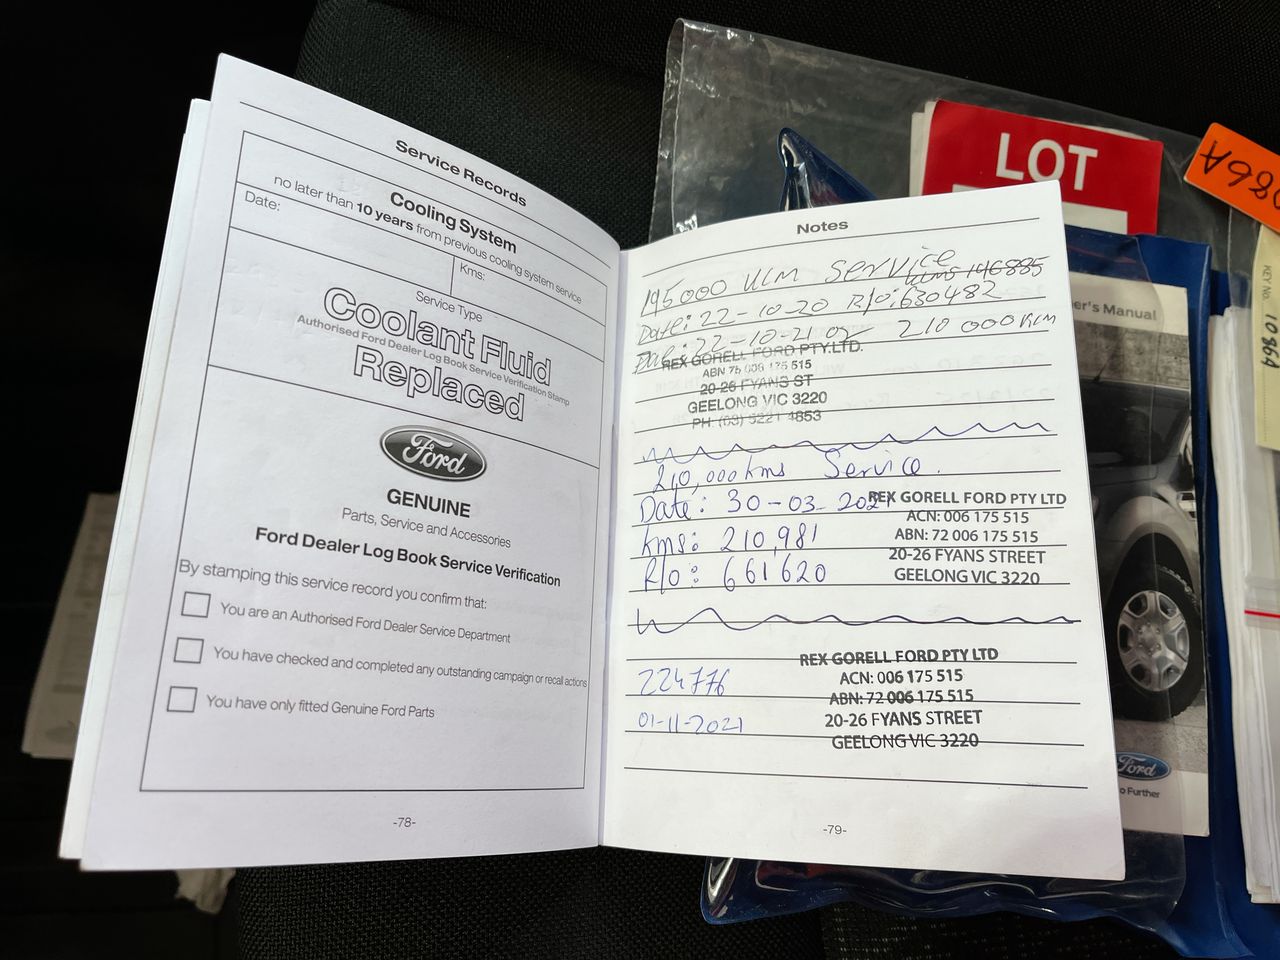 Service Records
Cooling System
no later than 10 years from previous cooling system service
Date:
Kms:
Service Type
Coolant Fluid
Authorised Ford Dealer Log Book Service Verification Stamp
Replaced
Ford
GENUINE
Parts, Service and Accessories
Ford Dealer Log Book Service Verification
By stamping this service record you confirm that:
You are an Authorised Ford Dealer Service Department
You have checked and completed any outstanding campaign or recall actions
You have only fitted Genuine Ford Parts
-78-
Notes
195000 KLM Service
KLMS 196885
Date: 22-10-20 R/O: 630482
22-10-21 or 210 000 KLM
REX GORELL FORD PTY.LTD.
ABN 75 006 175 515
20-26 FYANS ST
GEELONG VIC 3220
PH (03) 5221 4853
210,000 kms Service.
Date: 30-03-2021
kms: 210,981
R/o: 661620
REX GORELL FORD PTY LTD
ACN: 006 175 515
ABN: 72 006 175 515
20-26 FYANS STREET
GEELONG VIC 3220
224776
01-11-2021
REX GORELL FORD PTY LTD
ACN: 006 175 515
ABN: 72 006 175 515
20-26 FYANS STREET
GEELONG VIC 3220
-79-
LOT
1086A
KEY No.
1086A
er's Manual
Ford
o Further